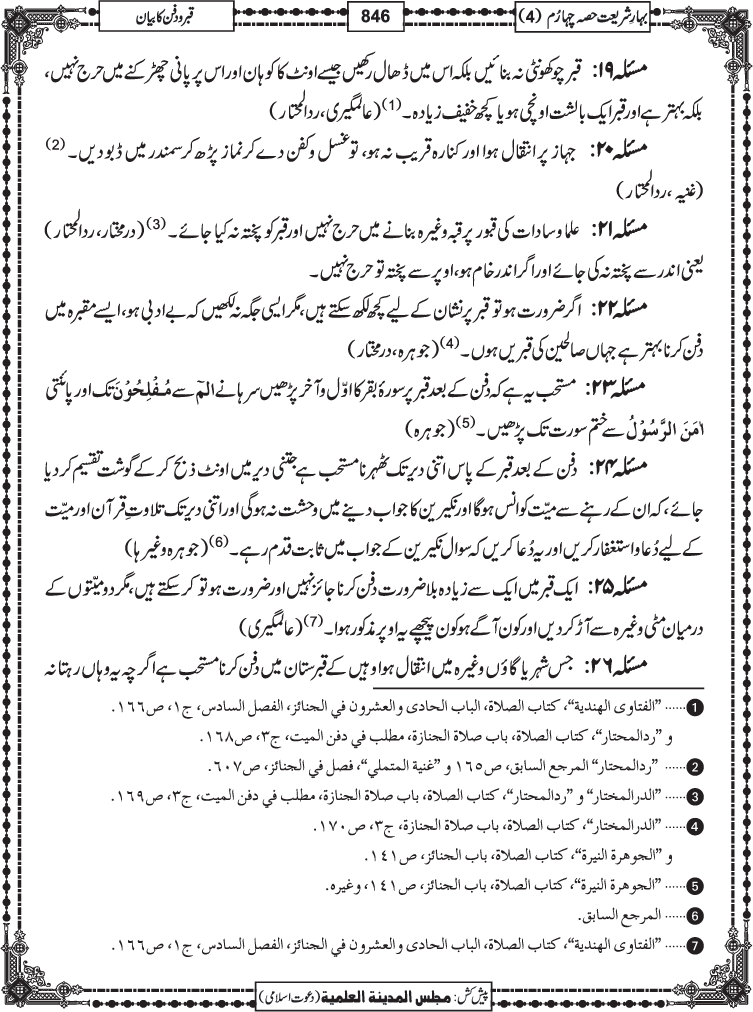 بہار شریعت حصہ چہارم (4)
846
قبر و دفن کا بیان
مسئلہ ۱۹: قبر چوکھونٹی نہ بنائیں بلکہ اس میں ڈھال رکھیں جیسے اونٹ کا کوہان اور اس پر پانی چھڑکنے میں حرج نہیں،
بلکہ بہتر ہے اور قبر ایک بالشت اونچی ہو یا کچھ خفیف زیادہ۔(1) (عالمگیری، ردالمحتار)
مسئلہ ۲۰: جہاز پر انتقال ہوا اور کنارہ قریب نہ ہو، تو غسل و کفن دے کر نماز پڑھ کر سمندر میں ڈبو دیں۔(2)
(غنیہ، ردالمحتار)
مسئلہ ۲۱: علما و سادات کی قبور پر قبہ وغیرہ بنانے میں حرج نہیں اور قبر کو پختہ نہ کیا جائے۔(3) (درمختار، ردالمحتار)
یعنی اندر سے پختہ نہ کی جائے اور اگر اندر خام ہو، اوپر سے پختہ تو حرج نہیں۔
مسئلہ ۲۲: اگر ضرورت ہو تو قبر پر نشان کے لیے کچھ لکھ سکتے ہیں، مگر ایسی جگہ نہ لکھیں کہ بے ادبی ہو، ایسے مقبرہ میں
دفن کرنا بہتر ہے جہاں صالحین کی قبریں ہوں۔(4) (جوہرہ، درمختار)
مسئلہ ۲۳: مستحب یہ ہے کہ دفن کے بعد قبر پر سورۂ بقر کا اوّل و آخر پڑھیں سرہانے الٓمٓ سے مُفْلِحُوْنَ تک اور پائنتی
اٰمَنَ الرَّسُوْلُ سے ختم سورت تک پڑھیں۔(5) (جوہرہ)
مسئلہ ۲۴: دفن کے بعد قبر کے پاس اتنی دیر تک ٹھہرنا مستحب ہے جتنی دیر میں اونٹ ذبح کر کے گوشت تقسیم کر دیا
جائے، کہ ان کے رہنے سے میّت کو انس ہوگا اور نکیرین کا جواب دینے میں وحشت نہ ہوگی اور اتنی دیر تک تلاوتِ قرآن اور میّت
کے لیے دُعا و استغفار کریں اور یہ دُعا کریں کہ سوال نکیرین کے جواب میں ثابت قدم رہے۔(6) (جوہرہ وغیرہا)
مسئلہ ۲۵: ایک قبر میں ایک سے زیادہ بلا ضرورت دفن کرنا جائز نہیں اور ضرورت ہو تو کر سکتے ہیں، مگر دو میّتوں کے
درمیان مٹی وغیرہ سے آڑ کر دیں اور کون آگے ہو کون پیچھے یہ اوپر مذکور ہوا۔(7) (عالمگیری)
مسئلہ ۲۶: جس شہر یا گاؤں وغیرہ میں انتقال ہوا وہیں کے قبرستان میں دفن کرنا مستحب ہے اگرچہ یہ وہاں رہتا نہ
1 ...... "الفتاوی الهندية"، كتاب الصلاة، الباب الحادی والعشرون في الجنائز، الفصل السادس، ج١، ص١٦٦.
و "ردالمحتار"، كتاب الصلاة، باب صلاة الجنازة، مطلب في دفن الميت، ج٣، ص١٦٨.
2 ...... "ردالمحتار" المرجع السابق، ص١٦٥ و "غنية المتملي"، فصل في الجنائز، ص٦٠٧.
3 ...... "الدرالمختار" و "ردالمحتار"، كتاب الصلاة، باب صلاة الجنازة، مطلب في دفن الميت، ج٣، ص١٦٩.
4 ...... "الدرالمختار"، كتاب الصلاة، باب صلاة الجنازة، ج٣، ص١٧٠.
و "الجوهرة النيرة"، كتاب الصلاة، باب الجنائز، ص١٤١.
5 ...... "الجوهرة النيرة"، كتاب الصلاة، باب الجنائز، ص١٤١، وغيره.
6 ...... المرجع السابق.
7 ...... "الفتاوی الهندية"، كتاب الصلاة، الباب الحادی والعشرون في الجنائز، الفصل السادس، ج١، ص١٦٦.
پیش کش: مجلس المدینة العلمیة (دعوت اسلامی)